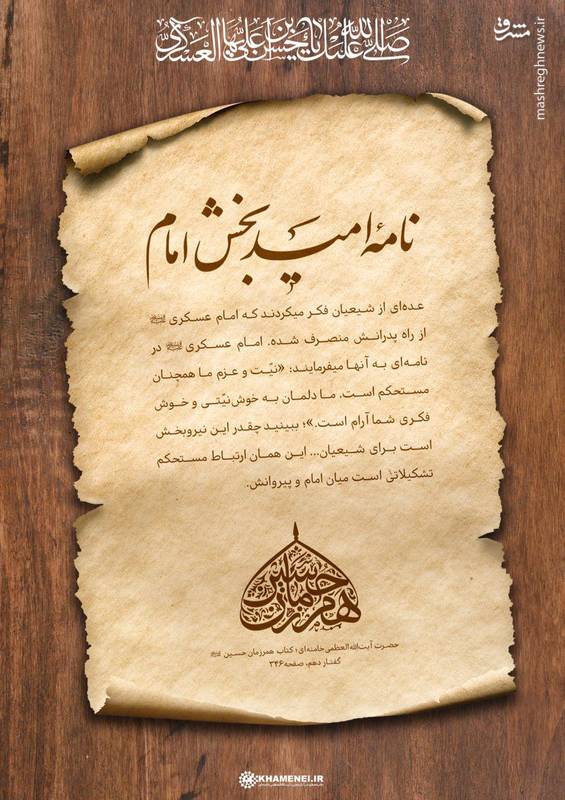 صلی الله علیک یا حسن بن علی ایها العسکری
مشرق
mashreghnews.ir
نامهٔ امیدبخش امام
عده‌ای از شیعیان فکر میکردند که امام عسکری ﷷ
از راه پدرانش منصرف شده. امام عسکری در
نامه‌ای به آنها میفرمایند: «نیّت و عزم ما همچنان
مستحکم است. ما دلمان به خوش‌نیّتی و خوش
فکری شما آرام است.»؛ ببینید چقدر این نیروبخش
است برای شیعیان... این همان ارتباط مستحکم
تشکیلاتی است میان امام و پیروانش.
همرزمان حسین
حضرت آیت‌الله‌العظمی خامنه‌ای؛ کتاب همرزمان حسین
گفتار دهم، صفحه ۳۴۶
KHAMENEI.IR